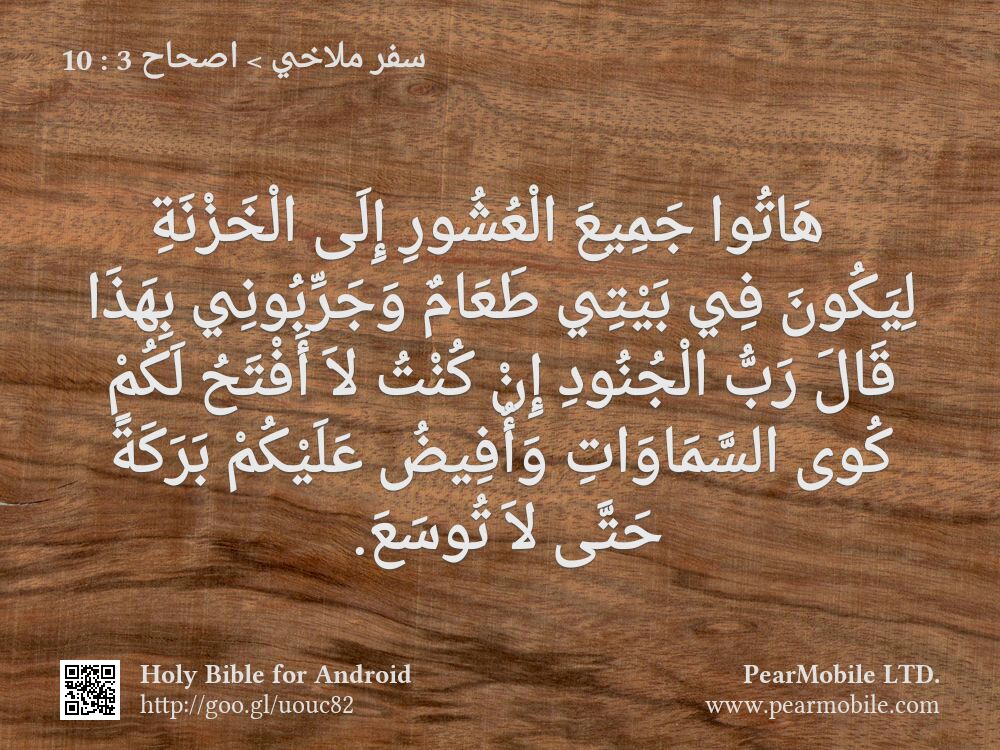 سفر ملاخي > اصحاح 3 : 10
هَاتُوا جَمِيعَ الْعُشُورِ إِلَى الْخَزْنَةِ
لِيَكُونَ فِي بَيْتِي طَعَامٌ وَجَرِّبُونِي بِهَذَا
قَالَ رَبُّ الْجُنُودِ إِنْ كُنْتُ لاَ أَفْتَحُ لَكُمْ
كُوى السَّمَاوَاتِ وَأُفِيضُ عَلَيْكُمْ بَرَكَةً
حَتَّى لاَ تُوسَعَ.
Holy Bible for Android
http://goo.gl/uouc82
PearMobile LTD.
www.pearmobile.com